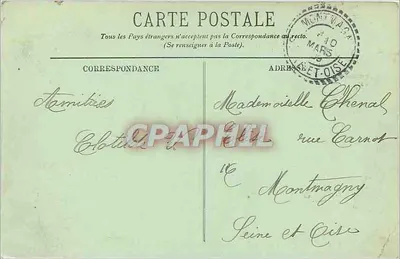 CARTE POSTALE
Tous les Pays étrangers n'acceptent pas la Correspondance au recto.
(Se renseigner à la Poste).
CORRESPONDANCE
ADRESSE
MONTMAGNY
10
MARS
ET-OISE
Amitiées
Clotilde
Mademoiselle Chenal
rue Carnot
Montmagny
Seine et Oise
CPAPHIL